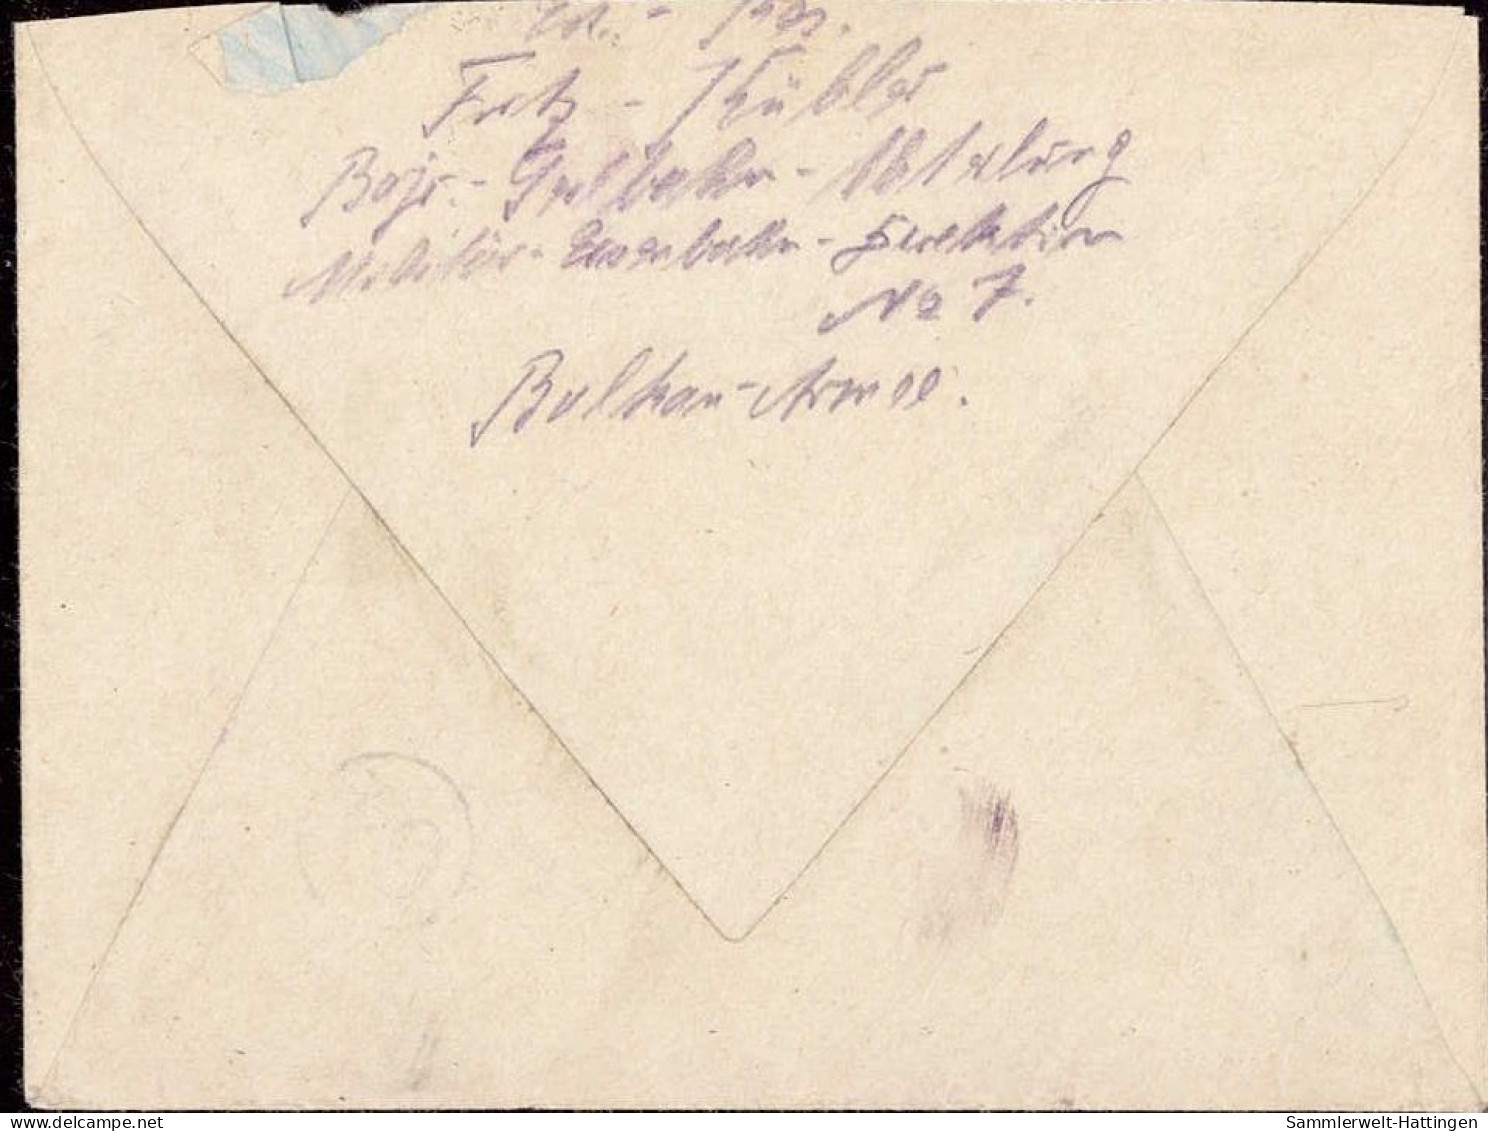 Fritz - Kübler
Bayr. - Feldbahn - Abteilung
Militär - Eisenbahn - Direktion
No 7.
Balkan - Armee.
delcampe.net
Sammlerwelt-Hattingen